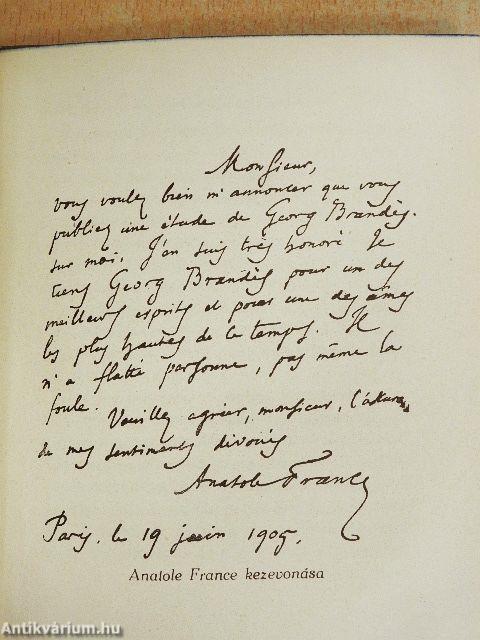 Monsieur,
vous voulez bien m'annoncer que vous
publiez une étude de Georg Brandès
sur moi. J'en suis très honoré. Je
tiens Georg Brandès pour un des
meilleurs esprits et pour une des âmes
les plus hautes de ce temps. Il
n'a flatté personne, pas même la
foule.
Veuillez agréer, monsieur, l'assurance
de mes sentiments dévoués
Anatole France
Paris. le 19 juin 1905.
Anatole France kezevonása
Antikvárium.hu